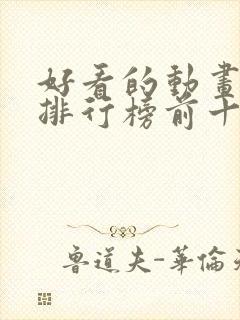 好看的動畫
排行榜前十
魯道夫-華倫